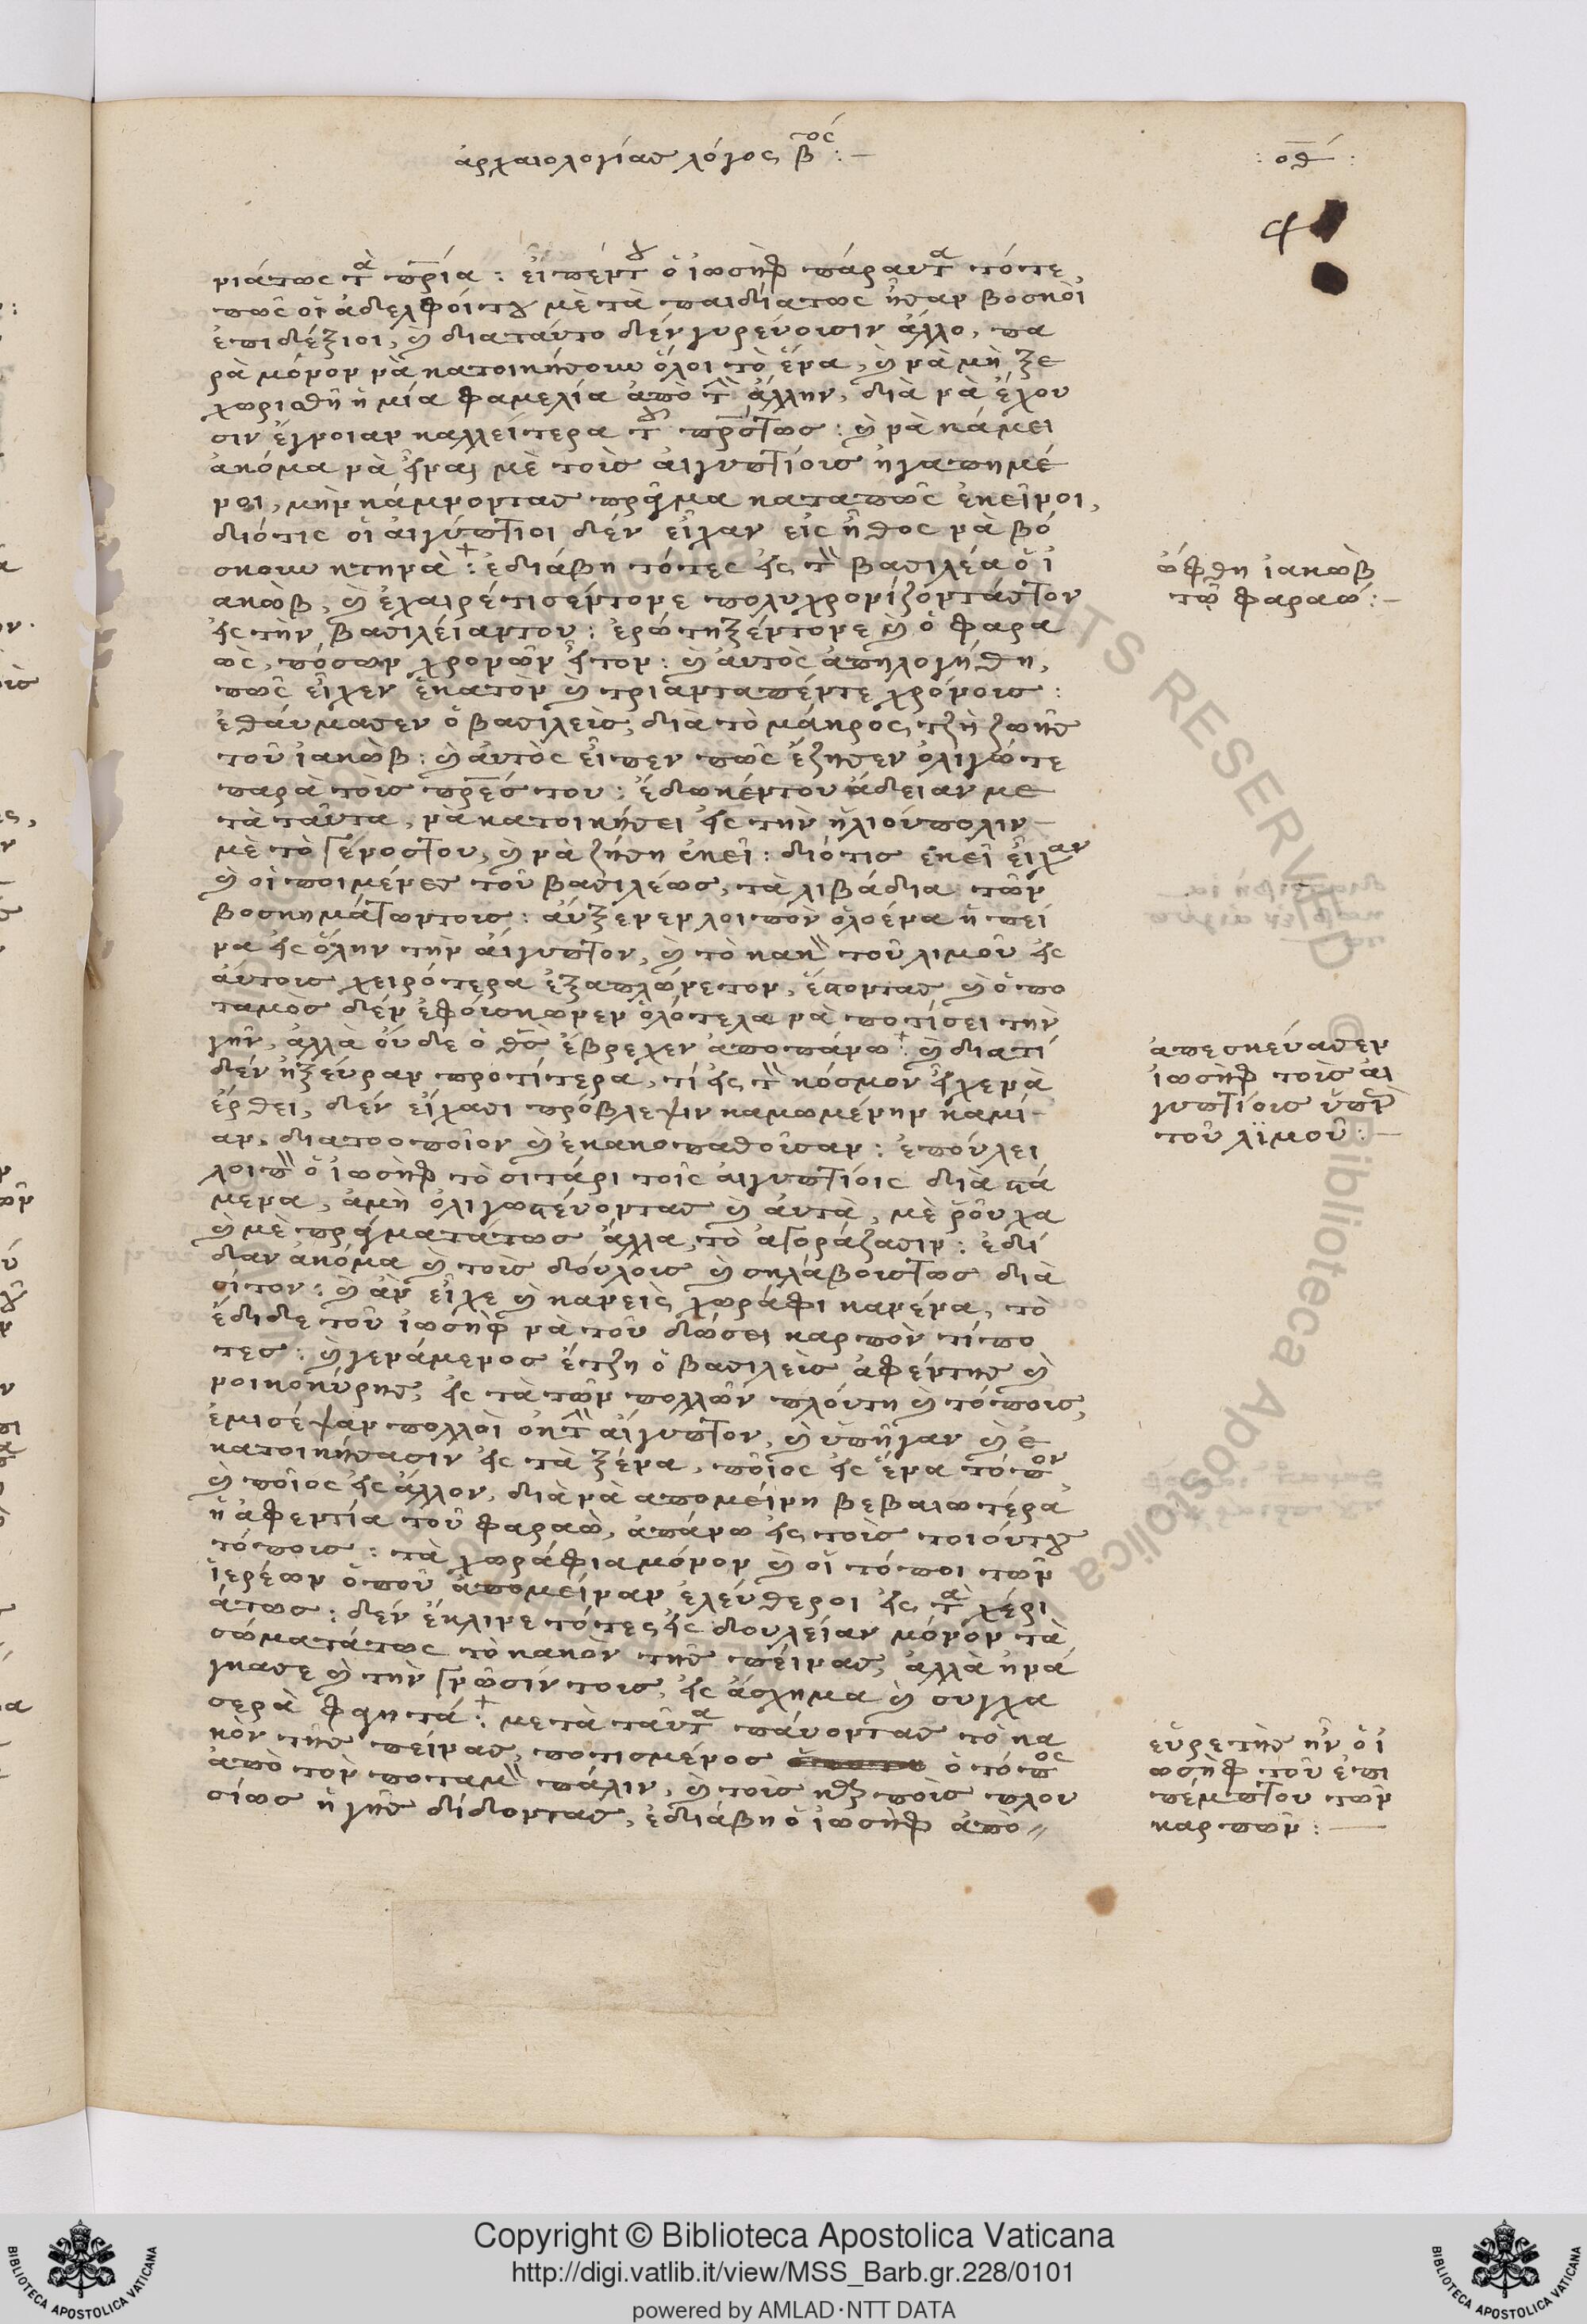 ἀρχαιολογίας λόγος β^ος :—
: οθ :
νιάτως τὰ πρία : εἶπεντου ὁ ἰωσὴφ πάραυτα τότε,
πῶς οἱ ἀδελφοίτου μὲ τὰ παιδίατως ἦσαν βοσκοὶ
ἐπιδέξιοι, καὶ διαταύτο δὲν γυρεύουσιν ἄλλο, πα
ρὰ μόνον νὰ κατοικήσουν ὅλοι τὸ ἕνα, καὶ νὰ μὴ ξε
χωρισθῆ ἡ μία φαμελία ἀπὸ τὴν ἄλλην, διὰ νὰ ἔχου
σιν ἔγνοιαν καλλείτερα τοῦ πρστως : καὶ νὰ κάμει
ἀκόμα νὰ εἶναι μὲ τοὺς ἀιγυπτίους ἠγαπημέ
νοι, μὴν κάμνοντας πρᾶγμα καταπῶς ἐκεῖνοι,
διότις οἱ ἀιγύπτιοι δὲν εἶχαν εἰς ἦθος νὰ βό
σκουν κτηνὰ : ἐδιάβη τότες εἰς τὸν βασιλέα ὁ ἰ
ακὼβ, καὶ ἐχαιρέτισέντονε πολυχρονίζοντάστον
εἰς τὴν βασιλείαντου : ἐρώτηξέντονε καὶ ὁ φαρα
ὼς, πόσων χρονῶν εἶτον : καὶ ἀυτὸς ἀπηλογήθη,
πῶς εἶχεν ἑκατὸν καὶ τριανταπέντε χρόνους :
ἐθάυμασεν ὁ βασιλεὺς, διὰ τὸ μάκρος τζὴ ζωῆς
τοῦ ἰακὼβ : καὶ ἀυτὸς εἶπεν πῶς ἔζησεν ὀλιγώτε
παρὰ τοὺς πρές του : ἔδωκέντου ἄδειαν με
τὰ ταῦτα, νὰ κατοικήσει εἰς τὴν ἡλιούπολιν—
μὲ τὸ γένοστου, καὶ νὰ ζήση ἐκεῖ : διότις ἐκεῖ εἶχαν
καὶ οἱ ποιμένες τοῦ βασιλέως, τὰ λιβάδια τῶν
βοσκημάτωντους : ἀύξενεν λοιπὸν ὁλοένα ἡ πεί
να εἰς ὅλην τὴν ἀίγυπτον, καὶ τὸ κακὸν τοῦ λιμοῦ εἰς
ἀύτους χειρότερα ἐξαπλώνετον, ἔποντας καὶ ὁ πο
ταμὸς δὲν ἐφούσκωνεν ὁλότελα νὰ ποτίσει τὴν
γῆν, ἀλλὰ ὀύδε ὁ θς ἔβρεχεν ἀποπάνω : καὶ διατί
δὲν ἠξεύραν προτίτερα, τί εἰς τὸν κόσμον εἶχε νὰ
ἔρθει, δὲν εἴχασι πρόβλεψιν καμωμένην καμί—
αν, διατοοποῖον καὶ ἐκακοπαθοῦσαν : ἐπούλει
λοιπὸν ὁ ἰωσὴφ τὸ σιτάρι τοῖς ἀιγυπτίοις διὰ τά
μενα, ἀμὴ ὀλιγωτένοντας καὶ ἀυτὰ, μὲ ῥοῦχα
καὶ μὲ πράγματάτως ἄλλα, τὸ ἀγοράζασιν : ἐδί
δαν ἀκόμα καὶ τοὺς δούλους καὶ σκλάβουστως διὰ
σίτον : καὶ ἂν εἶχε καὶ κανεὶς χωράφι κανένα, τὸ
ἔδιδε τοῦ ἰωσὴφ νὰ τοῦ δώσει καρπὸν τίπο
τες : καὶ γενάμενος ἔτζη ὁ βασιλεὺς ἀφέντης καὶ
νοικοκύρης, εἰς τὰ τῶν πολλῶν πλόυτη καὶ τόπους,
ἐμισέψαν πολλοὶ ἐκ τὴν ἀίγυπτον, καὶ ὑπῆγαν καὶ ἐ
κατοικήσασιν εἰς τὰ ξένα, ποῖος εἰς ἕνα τόπον,
καὶ ποῖος εἰς ἄλλον, διὰ νὰ απομείνη βεβαιωτέρα
ἡ ἀφεντία τοῦ φαραὼ, ἀπάνω εἰς τοὺς τοιούτου
τόπους : τὰ χωράφια μόνον καὶ οἱ τόποι τῶν
ἱερέων ὁποῦ ἀπομείναν ἐλεύθεροι εἰς τὰ χέρι
άτως : δὲν ἔκλινε τότες εἰς δουλείαν μόνον τὰ
σώματάτως τὸ κακὸν τῆς πείνας, ἀλλὰ ἠνά
γκασε καὶ τὴν γνῶσίν τους, εἰς ἄσχημα καὶ συγχα
σερὰ φαητά : μετὰ ταῦτα πάυοντας τὸ κα
κὸν τῆς πείνας, ποτισμένος ὁ τόπος
ἀπὸ τὸν ποταμὸν πάλιν, καὶ τοὺς καρποὺς πλου
σίως ἡ γῆς δίδοντας, ἐδιάβη ὁ ἰωσὴφ ἀπὸ
ὤφθη ἰακὼβ
τῷ φαραώ :—
ἀπεσκεύασεν
ἰωσὴφ τοὺς αἰ
γυπτίους ὑπὸ
τοῦ λϊμοῦ :—
εὑρετὴς ἦν ὁ ἰ
ωσὴφ τοῦ ἐπι
πέμπτου τῶν
καρπῶν :—
Copyright © Biblioteca Apostolica Vaticana
http://digi.vatlib.it/view/MSS_Barb.gr.228/0101
powered by AMLAD·NTT DATA
BIBLIOTECA APOSTOLICA VATICANA
BIBLIOTECA APOSTOLICA VATICANA